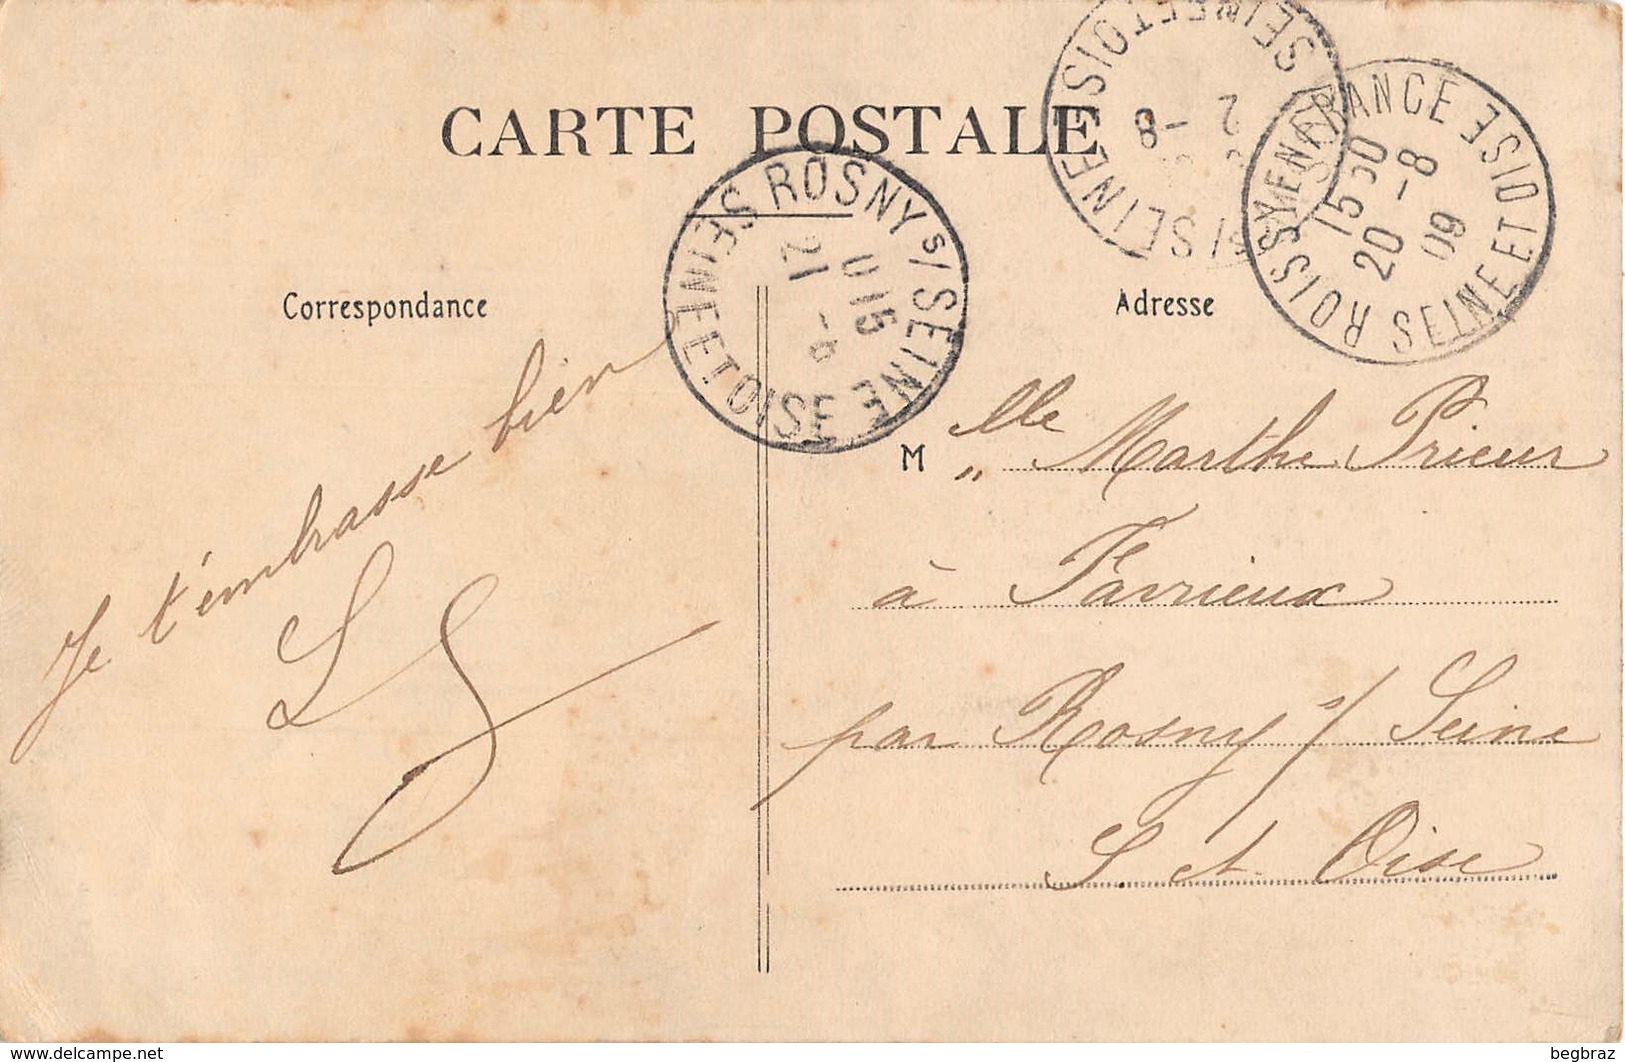 CARTE POSTALE
SEINE ET OISE
S/SEINE
2
-8
ROISSY EN FRANCE
SEINE ET OISE
15 30
20 -8
09
ROSNY S/SEINE
SEINE ET OISE
0 15
21 -8
Correspondance
Adresse
Je t'embrasse bien
M
elle Marthe Prieur
à Favrieux
par Rosny s/ Seine
S. et Oise
www.delcampe.net
begbraz